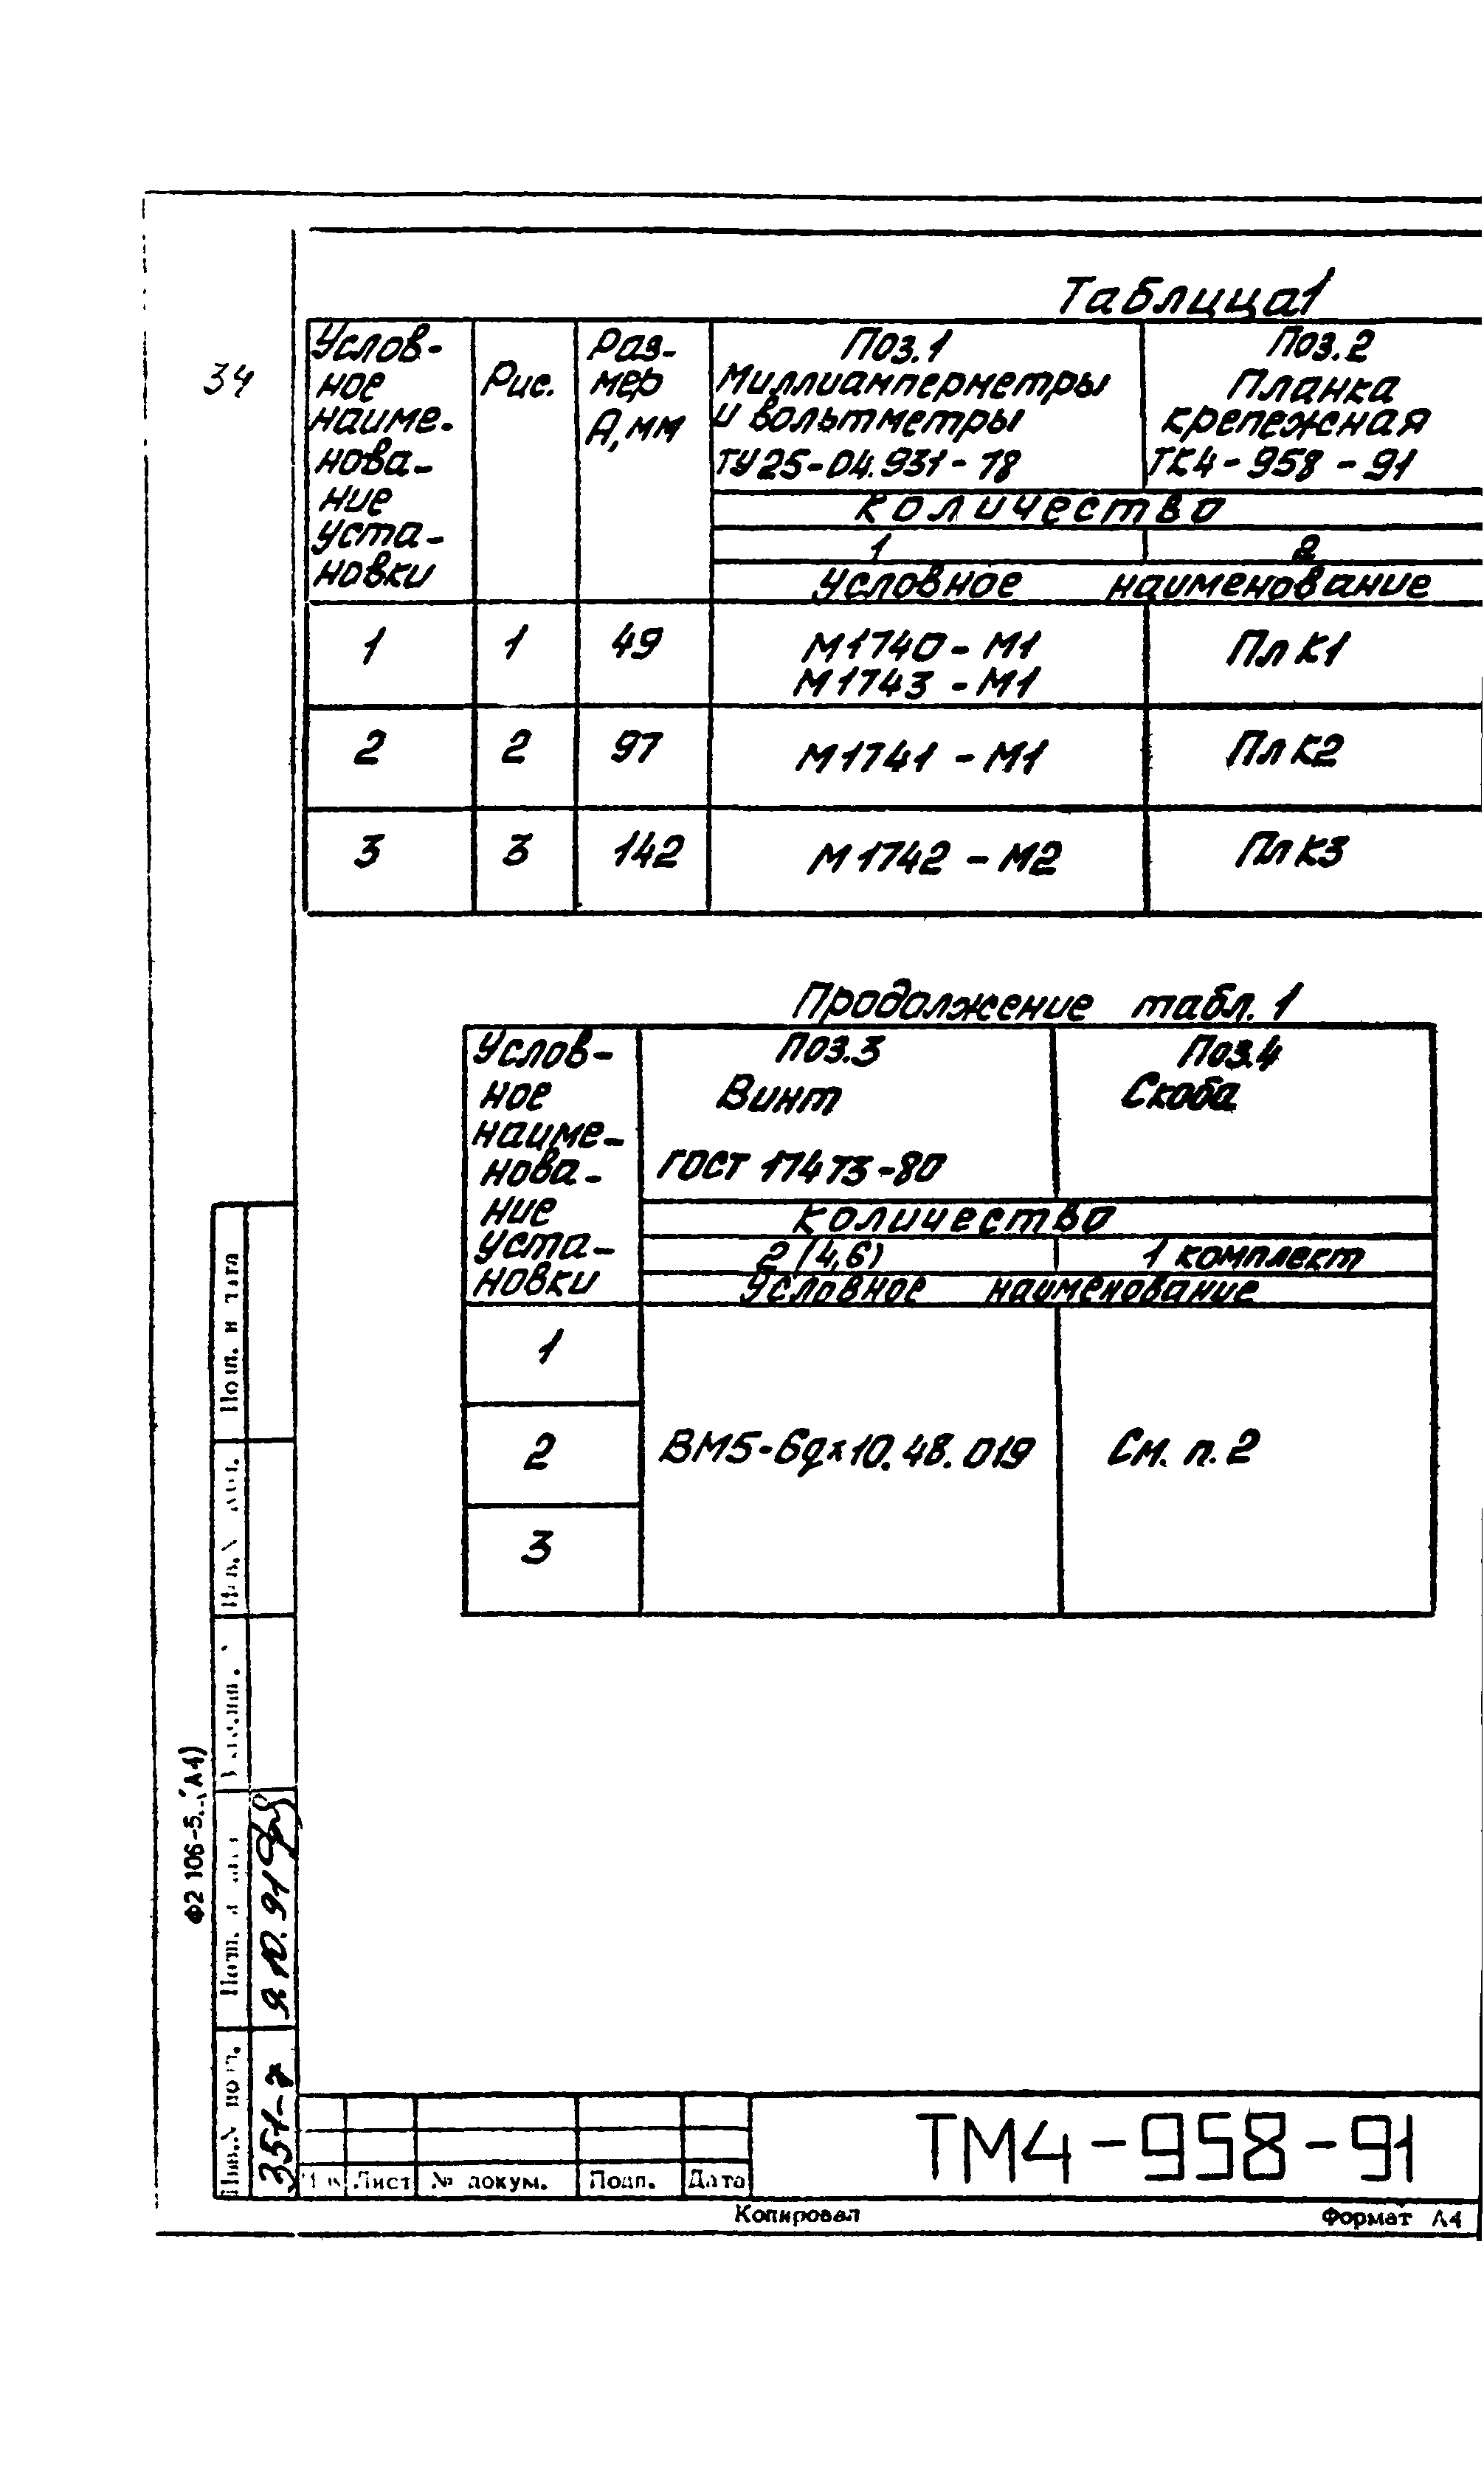 34
Таблица1
Услов-
ное
наиме-
нова-
ние
уста-
новки
Рис.
Раз-
мер
А, мм
Поз.1
Миллиамперметры
и вольтметры
ТУ25-04.931-78
Поз.2
Планка
крепежная
ТК4-958-91
количество
1 2
Условное наименование
1 1 49 М1740-М1 ПлК1
М1743-М1
2 2 97 М1741-М1 ПлК2
3 3 142 М1742-М2 ПлК3
Продолжение табл. 1
Услов-
ное
наиме-
нова-
ние
уста-
новки
Поз.3
Винт
ГОСТ 17473-80
Поз.4
Скоба
количество
2 (4,6) 1 комплект
Условное наименование
1
2 ВМ5-6gх10.48.019 См. п. 2
3
Ф2 106-5 (А4)
Подп. и дата
10.91
351-7
Лист № докум. Подп. Дата
ТМ4-958-91
Копировал Формат А4